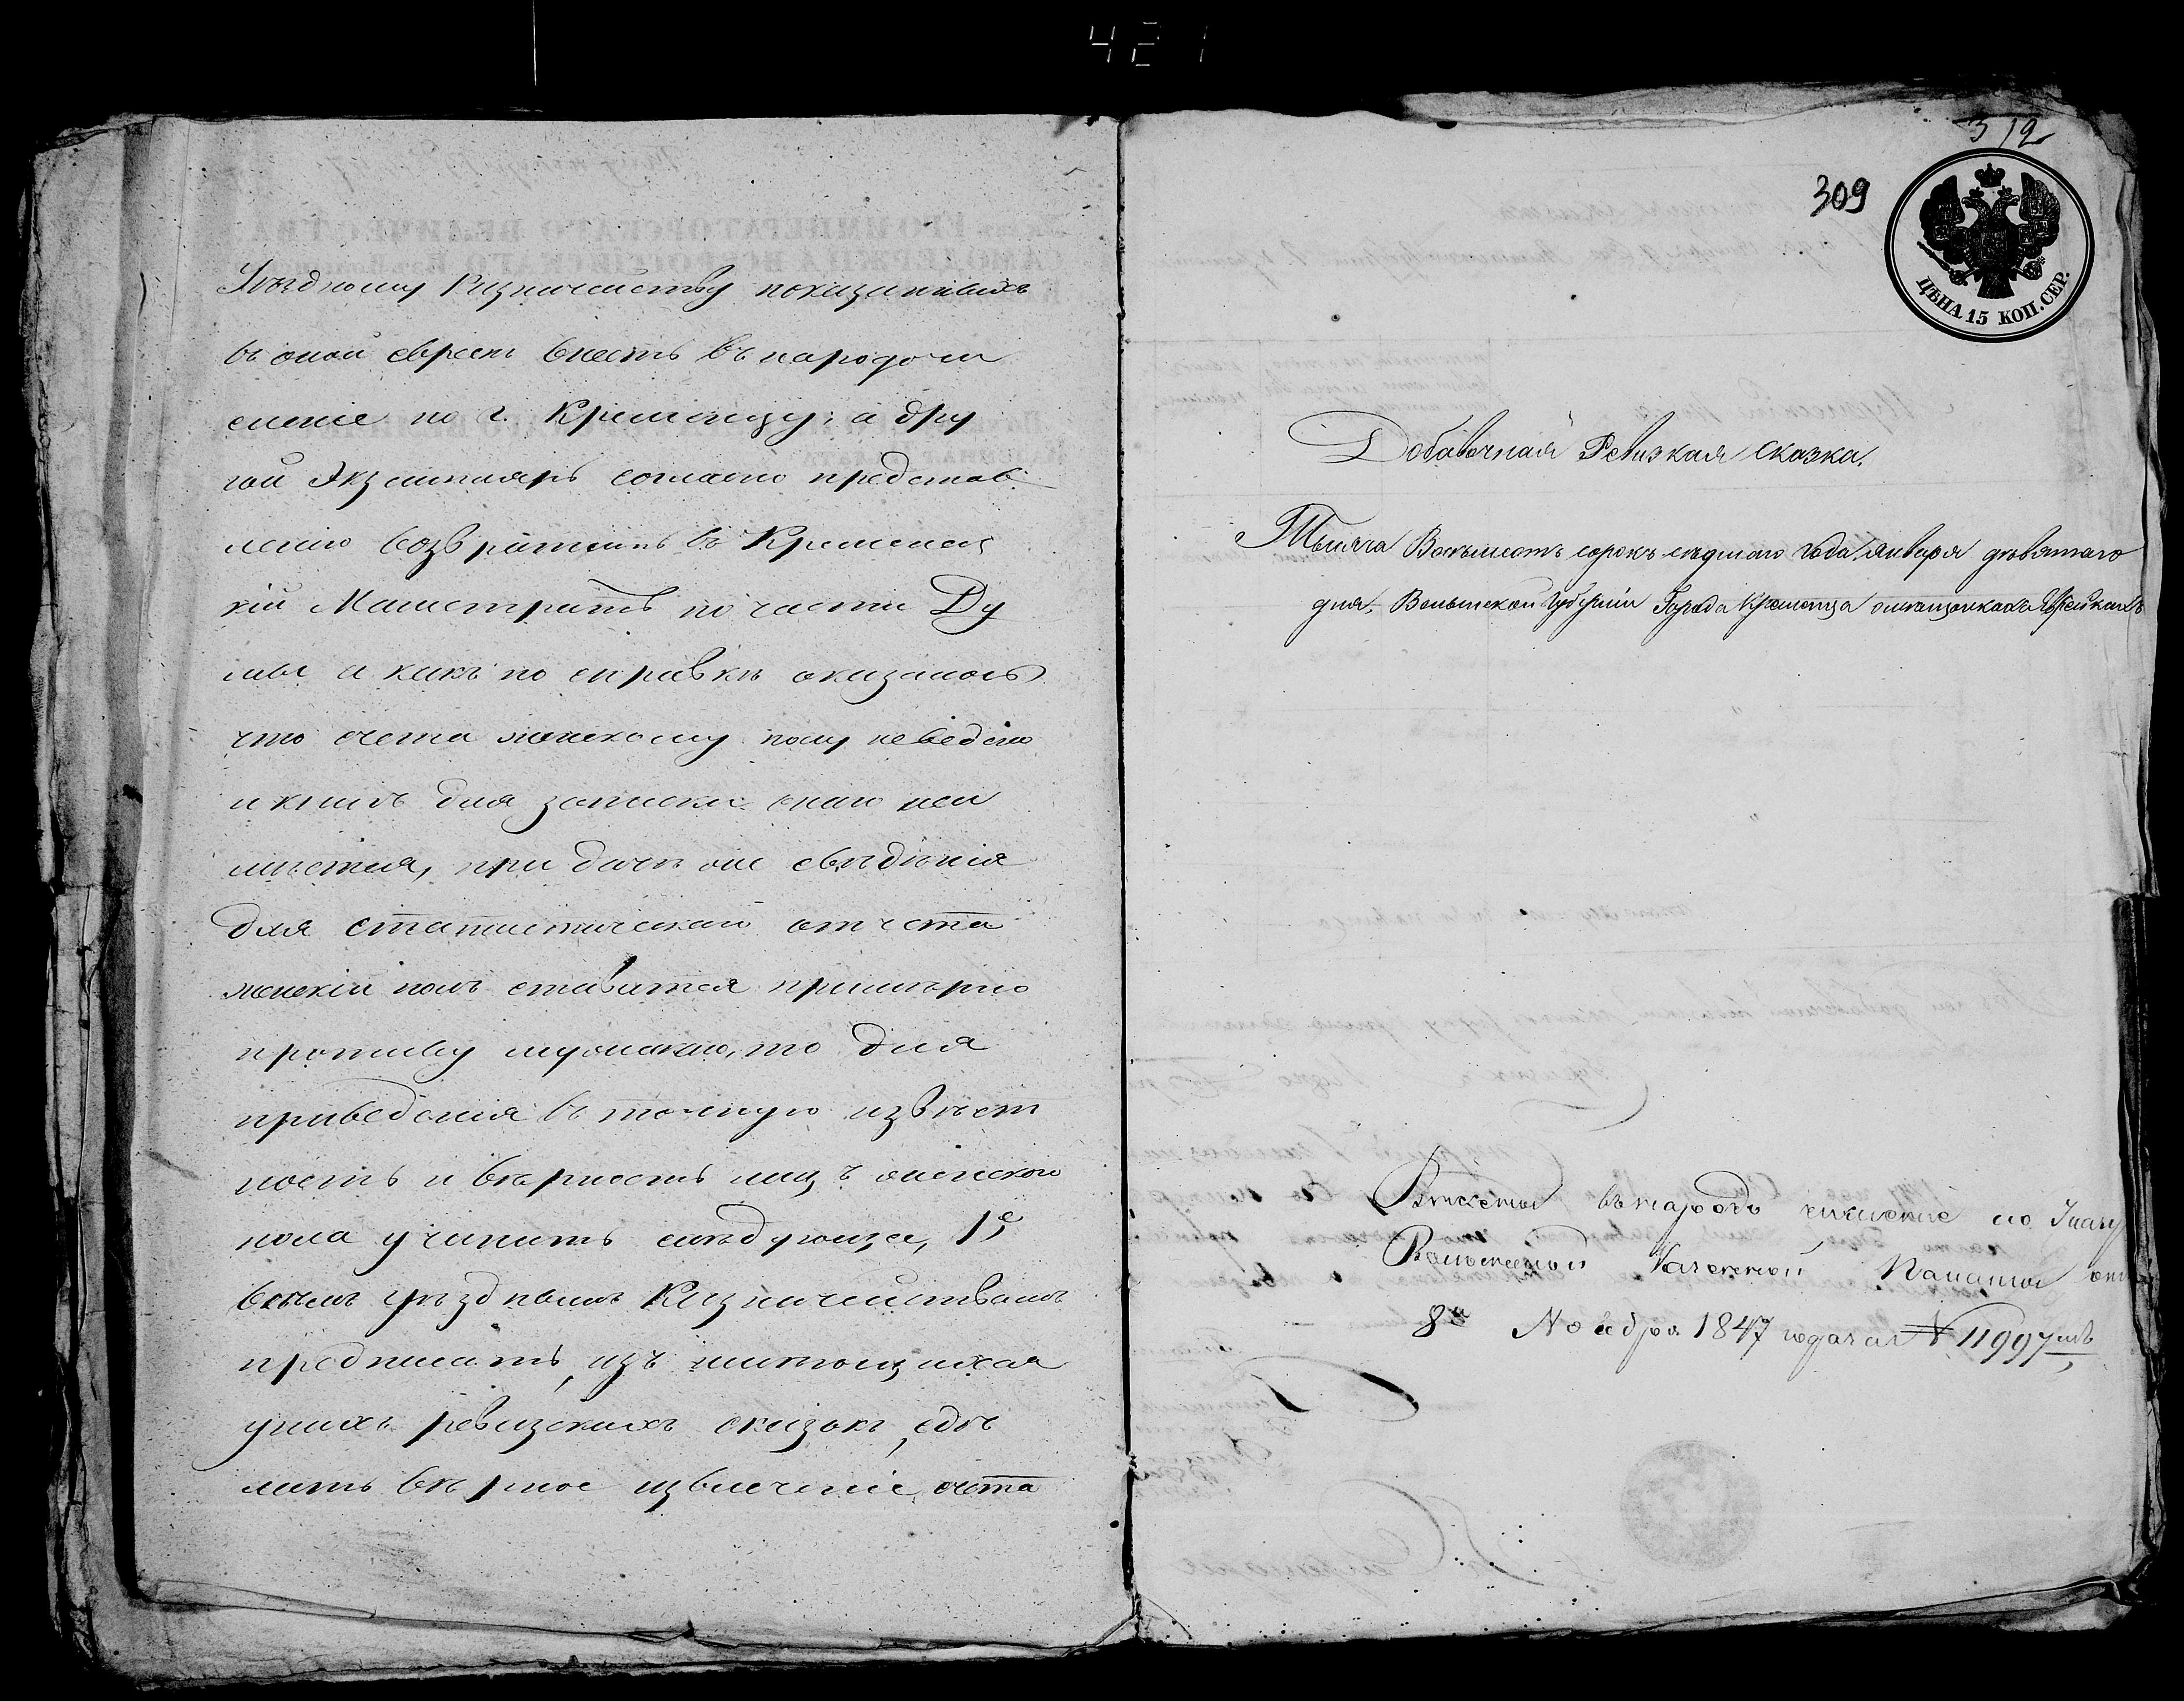 421
Уѣздному Казначейству показанныхъ
въ оной евреевъ внесть въ народочи
сленіе по г. Кременцу; а дру
гой Экземпляръ согласно представ
ленію возвратить въ Кременец
кій Магистратъ по части Ду
мы а какъ по справкѣ оказалось
что счета женскому полу неведено
и книгъ для записки онаго не
имѣется, при дачѣ же свѣдѣнія
для статистическаго отчета
женскій полъ ставится примѣрно
противу мужскаго, то для
приведенія въ точную извѣст
ность и вѣрность лицъ женскаго
пола учинить слѣдующее, 1е
всѣмъ уѣзднымъ Казначействамъ
предписать, изъ имѣющихся
у нихъ ревизскихъ сказокъ, сдѣ
лать вѣрное извлеченіе, счета
312
309
ЦѢНА 15 КОП. СЕР.
Добавочная Ревизкая сказка.
Тысяча Восемьсотъ сорокъ седьмого года января девятаго
дня, Волынской Губерніи Города Кременца омещанкахъ Еврейкахъ
Внесены въ народо численіе по Указу
Волынской Казенной Палаты отъ
8го Ноября 1847 года за № 11997мъ